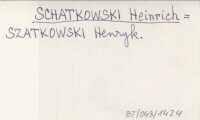 SCHATKOWSKI Heinrich =
SZATKOWSKI Henryk.
BT/043/1424